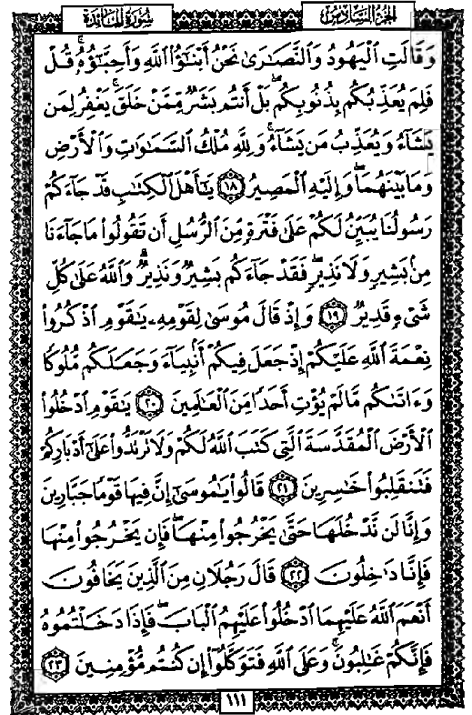 الجزء السادس سورة المائدة
وَقَالَتِ الْيَهُودُ وَالنَّصَارَىٰ نَحْنُ أَبْنَاؤُا اللَّهِ وَأَحِبَّاؤُهُ ۚ قُلْ
فَلِمَ يُعَذِّبُكُم بِذُنُوبِكُم ۖ بَلْ أَنتُم بَشَرٌ مِّمَّنْ خَلَقَ ۚ يَغْفِرُ لِمَن
يَشَاءُ وَيُعَذِّبُ مَن يَشَاءُ ۚ وَلِلَّهِ مُلْكُ السَّمَاوَاتِ وَالْأَرْضِ
وَمَا بَيْنَهُمَا ۖ وَإِلَيْهِ الْمَصِيرُ ١٨ يَا أَهْلَ الْكِتَابِ قَدْ جَاءَكُمْ
رَسُولُنَا يُبَيِّنُ لَكُمْ عَلَىٰ فَتْرَةٍ مِّنَ الرُّسُلِ أَن تَقُولُوا مَا جَاءَنَا
مِن بَشِيرٍ وَلَا نَذِيرٍ ۖ فَقَدْ جَاءَكُم بَشِيرٌ وَنَذِيرٌ ۗ وَاللَّهُ عَلَىٰ كُلِّ
شَيْءٍ قَدِيرٌ ١٩ وَإِذْ قَالَ مُوسَىٰ لِقَوْمِهِ يَا قَوْمِ اذْكُرُوا
نِعْمَةَ اللَّهِ عَلَيْكُمْ إِذْ جَعَلَ فِيكُمْ أَنبِيَاءَ وَجَعَلَكُم مُّلُوكًا
وَآتَاكُم مَّا لَمْ يُؤْتِ أَحَدًا مِّنَ الْعَالَمِينَ ٢٠ يَا قَوْمِ ادْخُلُوا
الْأَرْضَ الْمُقَدَّسَةَ الَّتِي كَتَبَ اللَّهُ لَكُمْ وَلَا تَرْتَدُّوا عَلَىٰ أَدْبَارِكُمْ
فَتَنقَلِبُوا خَاسِرِينَ ٢١ قَالُوا يَا مُوسَىٰ إِنَّ فِيهَا قَوْمًا جَبَّارِينَ
وَإِنَّا لَن نَّدْخُلَهَا حَتَّىٰ يَخْرُجُوا مِنْهَا فَإِن يَخْرُجُوا مِنْهَا
فَإِنَّا دَاخِلُونَ ٢٢ قَالَ رَجُلَانِ مِنَ الَّذِينَ يَخَافُونَ
أَنْعَمَ اللَّهُ عَلَيْهِمَا ادْخُلُوا عَلَيْهِمُ الْبَابَ ۖ فَإِذَا دَخَلْتُمُوهُ
فَإِنَّكُمْ غَالِبُونَ ۚ وَعَلَى اللَّهِ فَتَوَكَّلُوا إِن كُنتُم مُّؤْمِنِينَ ٢٣
١١١